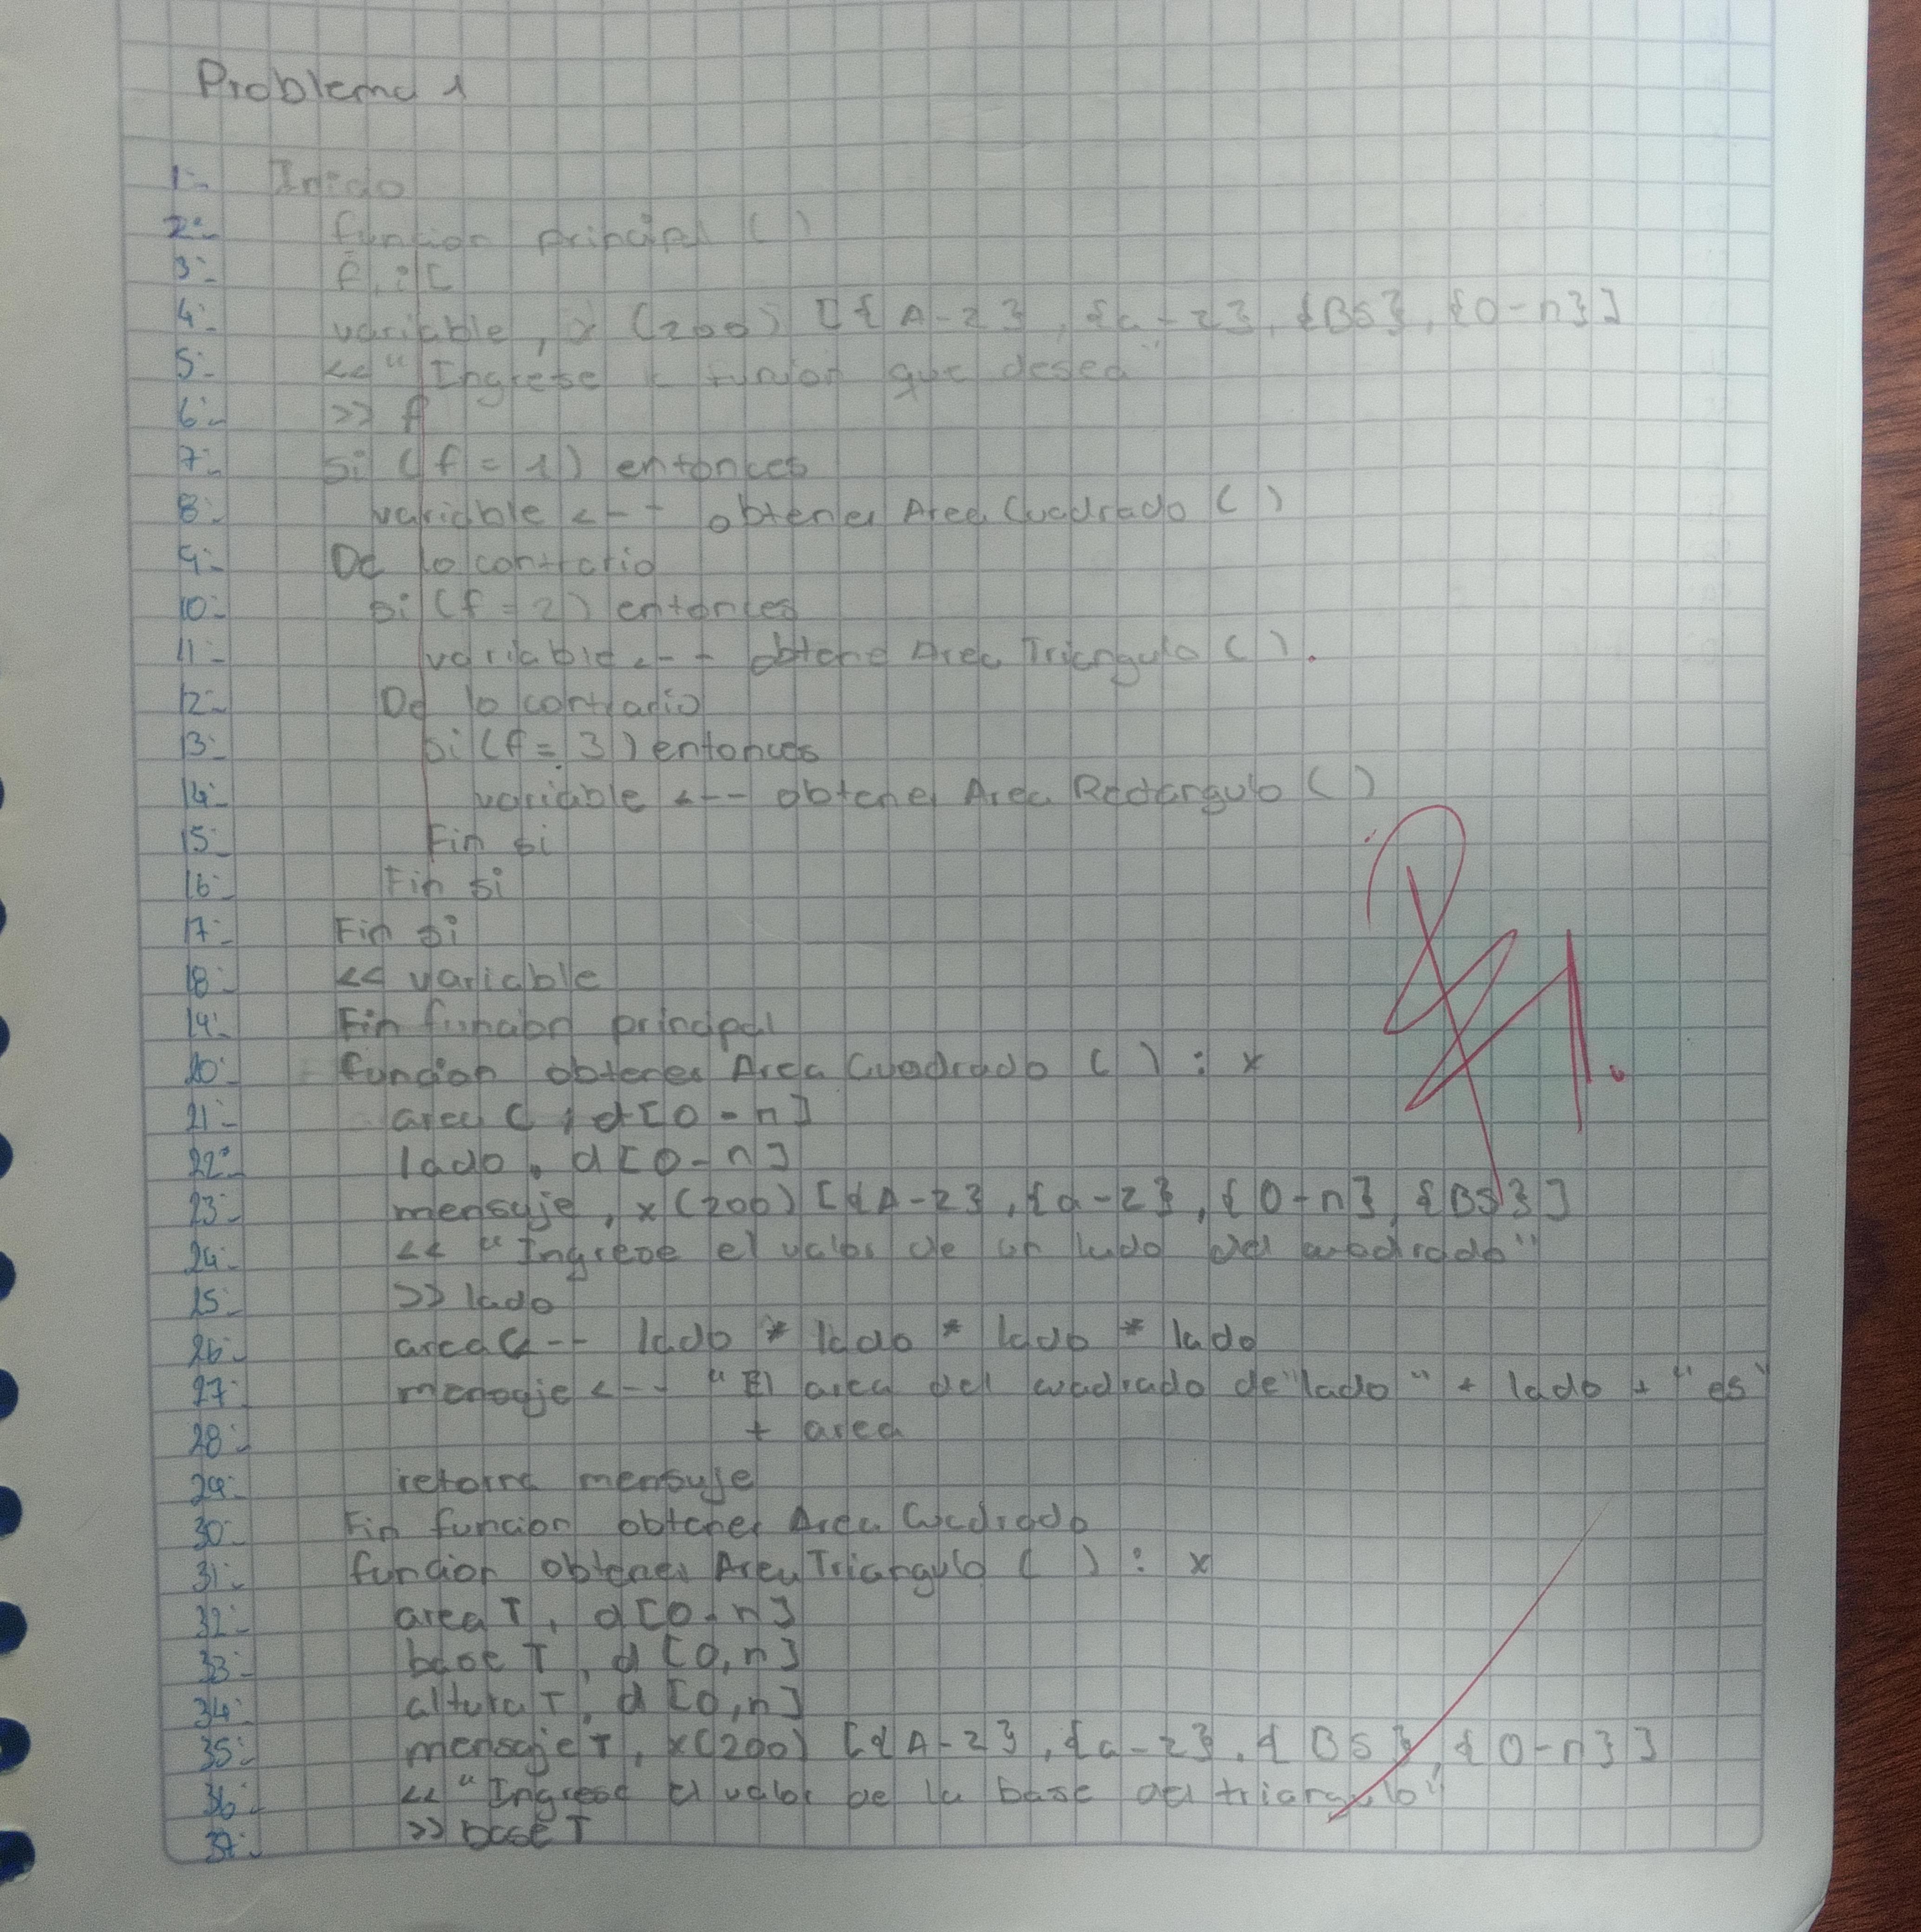 Problema 1
1.- Inicio
2.- funcion principal ( )
3.- f, i [
4.- variable, x (200) [{A-z}, {a-z}, {BS}, {0-n}]
5.- << "Ingrese funcion que desea"
6.- >> f
7.- si (f = 1) entonces
8.- variable <-- obtener Area Cuadrado ( )
9.- De lo contrario
10.- si (f = 2) entonces
11.- variable <-- obtene Area Triangulo ( ).
12.- De lo contrario
13.- si (f = 3) entonces
14.- variable <-- obtener Area Rectangulo ( )
15.- Fin si
16.- Fin si
17.- Fin si
18.- << variable
19.- Fin funcion principal
20.- funcion obtener Area Cuadrado ( ) : x
21.- area C , d [0-n]
22.- lado, d [0-n]
23.- mensaje, x (200) [{A-z}, {a-z}, {0-n}, {BS}]
24.- << "Ingrese el valor de un lado del cuadrado"
25.- >> lado
26.- area C <-- lado * lado * lado * lado
27.- mensaje <-- "El area del cuadrado de "lado" + lado + "es"
28.- + area
29.- retorna mensaje
30.- Fin funcion obtener Area Cuadrado
31.- funcion obtener Area Triangulo ( ) : x
32.- area T, d [0-n]
33.- base T, d [0,n]
34.- altura T, d [0,n]
35.- mensaje T, x (200) [{A-z}, {a-z}, {BS}, {0-n}]
36.- << "Ingrese el valor de la base del triangulo"
37.- >> base T